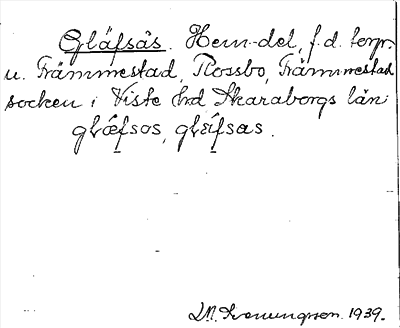 Gläfsås. Hem-del, f.d. torp.
u. Främmestad, Rossbo, Främmestad
socken i Viste hrd Skaraborgs län
glǽfsos, glǽfsas.
1939.